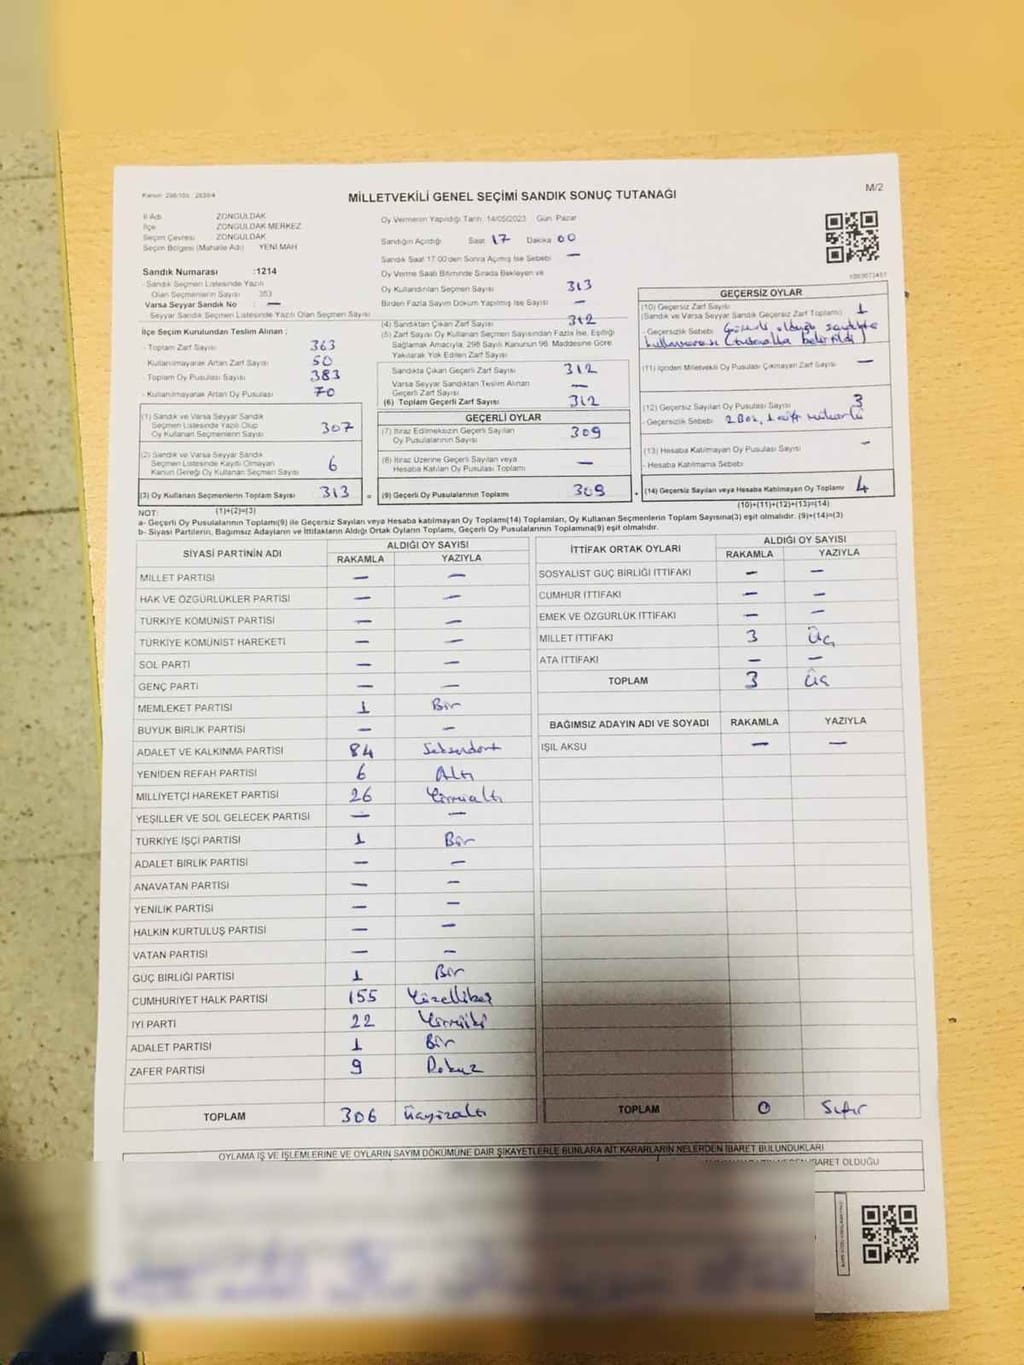 MİLLETVEKİLİ GENEL SEÇİMİ SANDIK SONUÇ TUTANAĞI
M/2
İl Adı ZONGULDAK
İlçe ZONGULDAK MERKEZ
Seçim Çevresi ZONGULDAK
Seçim Bölgesi (Mahalle Adı) YENİ MAH
Sandık Numarası :1214
-Sandık Seçmen Listesinde Yazılı
Olan Seçmenlerin Sayısı 353
Varsa Seyyar Sandık No —
Seyyar Sandık Seçmen Listesinde Yazılı Olan Seçmen Sayısı
İlçe Seçim Kurulundan Teslim Alınan :
- Toplam Zarf Sayısı 363
Kullanılmayarak Artan Zarf Sayısı 50
- Toplam Oy Pusulası Sayısı 383
- Kullanılmayarak Artan Oy Pusulası 70
(1) Sandık ve Varsa Seyyar Sandık
Seçmen Listesinde Yazılı Olup
Oy Kullanan Seçmenlerin Sayısı 307
(2) Sandık ve Varsa Seyyar Sandık
Seçmen Listesinde Kayıtlı Olmayan
Kanun Gereği Oy Kullanan Seçmen Sayısı 6
(3) Oy Kullanan Seçmenlerin Toplam Sayısı 313 =
(1)+(2)=(3)
Oy Vermenin Yapıldığı Tarih: 14/05/2023 Gün: Pazar
Sandığın Açıldığı Saat 17 Dakika 00
Sandık Saat 17.00'den Sonra Açılmış İse Sebebi —
Oy Verme Saati Bitiminde Sırada Bekleyen ve
Oy Kullandırılan Seçmen Sayısı 313
Birden Fazla Sayım Döküm Yapılmış İse Sayısı —
(4) Sandıktan Çıkan Zarf Sayısı 312
(5) Zarf Sayısı Oy Kullanan Seçmen Sayısından Fazla İse, Eşitliği
Sağlamak Amacıyla, 298 Sayılı Kanunun 98. Maddesine Göre
Yakılarak Yok Edilen Zarf Sayısı
Sandıkta Çıkan Geçerli Zarf Sayısı 312
Varsa Seyyar Sandıktan Teslim Alınan
Geçerli Zarf Sayısı —
(6) Toplam Geçerli Zarf Sayısı 312
GEÇERLİ OYLAR
(7) İtiraz Edilmeksizin Geçerli Sayılan
Oy Pusulalarının Sayısı 309
(8) İtiraz Üzerine Geçerli Sayılan veya
Hesaba Katılan Oy Pusulası Toplamı —
(9) Geçerli Oy Pusulalarının Toplamı 309
GEÇERSİZ OYLAR
(10) Geçersiz Zarf Sayısı 1
(Sandık ve Varsa Seyyar Sandık Geçersiz Zarf Toplamı)
- Geçersizlik Sebebi
(tutanakta belirtildi)
(11) İçinden Milletvekili Oy Pusulası Çıkmayan Zarf Sayısı —
(12) Geçersiz Sayılan Oy Pusulası Sayısı 3
- Geçersizlik Sebebi 2 Boş, 1 çift mühürlü
(13) Hesaba Katılmayan Oy Pusulası Sayısı —
- Hesaba Katılmama Sebebi
(14) Geçersiz Sayılan veya Hesaba Katılmayan Oy Toplamı 4
(10)+(11)+(12)+(13)=(14)
NOT:
a- Geçerli Oy Pusulalarının Toplamı(9) ile Geçersiz Sayılan veya Hesaba katılmayan Oy Toplamı(14) Toplamları, Oy Kullanan Seçmenlerin Toplam Sayısına(3) eşit olmalıdır. (9)+(14)=(3)
b- Siyasi Partilerin, Bağımsız Adayların ve İttifakların Aldığı Ortak Oyların Toplamı, Geçerli Oy Pusulalarının Toplamına(9) eşit olmalıdır.
SİYASİ PARTİNİN ADI ALDIĞI OY SAYISI
RAKAMLA YAZIYLA
MİLLET PARTİSİ — —
HAK VE ÖZGÜRLÜKLER PARTİSİ — —
TÜRKİYE KOMÜNİST PARTİSİ — —
TÜRKİYE KOMÜNİST HAREKETİ — —
SOL PARTİ — —
GENÇ PARTİ — —
MEMLEKET PARTİSİ 1 Bir
BÜYÜK BİRLİK PARTİSİ — —
ADALET VE KALKINMA PARTİSİ 84 Seksendört
YENİDEN REFAH PARTİSİ 6 Altı
MİLLİYETÇİ HAREKET PARTİSİ 26 Yirmialtı
YEŞİLLER VE SOL GELECEK PARTİSİ — —
TÜRKİYE İŞÇİ PARTİSİ 1 Bir
ADALET BİRLİK PARTİSİ — —
ANAVATAN PARTİSİ — —
YENİLİK PARTİSİ — —
HALKIN KURTULUŞ PARTİSİ — —
VATAN PARTİSİ — —
GÜÇ BİRLİĞİ PARTİSİ 1 Bir
CUMHURİYET HALK PARTİSİ 155 Yüzellibeş
İYİ PARTİ 22 Yirmiiki
ADALET PARTİSİ 1 Bir
ZAFER PARTİSİ 9 Dokuz
TOPLAM 306 Üçyüzaltı
İTTİFAK ORTAK OYLARI ALDIĞI OY SAYISI
RAKAMLA YAZIYLA
SOSYALİST GÜÇ BİRLİĞİ İTTİFAKI — —
CUMHUR İTTİFAKI — —
EMEK VE ÖZGÜRLÜK İTTİFAKI — —
MİLLET İTTİFAKI 3 Üç
ATA İTTİFAKI — —
TOPLAM 3 Üç
BAĞIMSIZ ADAYIN ADI VE SOYADI RAKAMLA YAZIYLA
IŞIL AKSU — —
TOPLAM 0 Sıfır
OYLAMA İŞ VE İŞLEMLERİNE VE OYLARIN SAYIM DÖKÜMÜNE DAİR ŞİKAYETLERLE BUNLARA AİT KARARLARIN NELERDEN İBARET BULUNDUKLARI
İBARET OLDUĞU